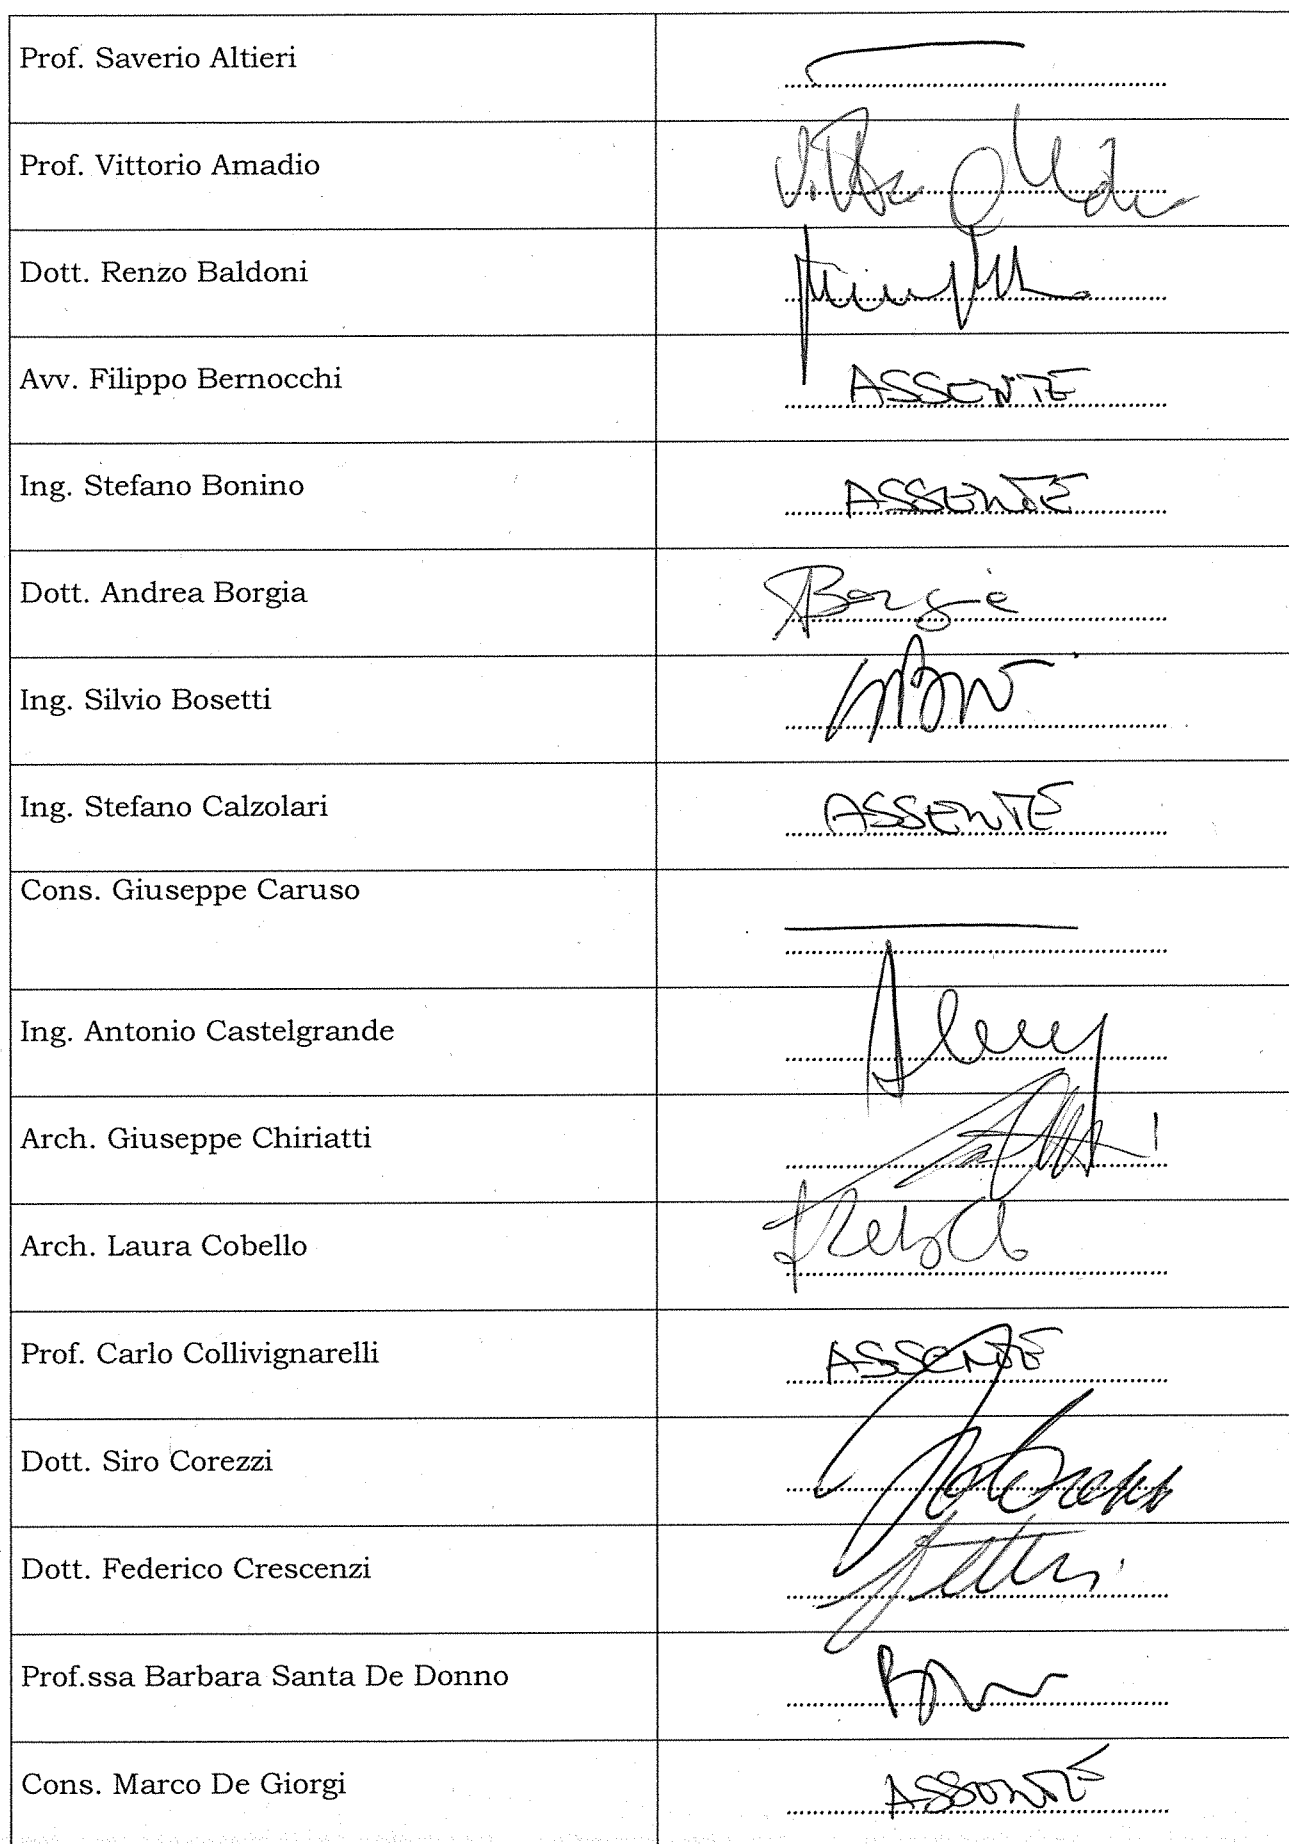 Prof. Saverio Altieri
Prof. Vittorio Amadio
Dott. Renzo Baldoni
Avv. Filippo Bernocchi ASSENTE
Ing. Stefano Bonino ASSENTE
Dott. Andrea Borgia ABorgia
Ing. Silvio Bosetti
Ing. Stefano Calzolari ASSENTE
Cons. Giuseppe Caruso
Ing. Antonio Castelgrande
Arch. Giuseppe Chiriatti
Arch. Laura Cobello
Prof. Carlo Collivignarelli ASSENTE
Dott. Siro Corezzi
Dott. Federico Crescenzi
Prof.ssa Barbara Santa De Donno
Cons. Marco De Giorgi ASSENTE